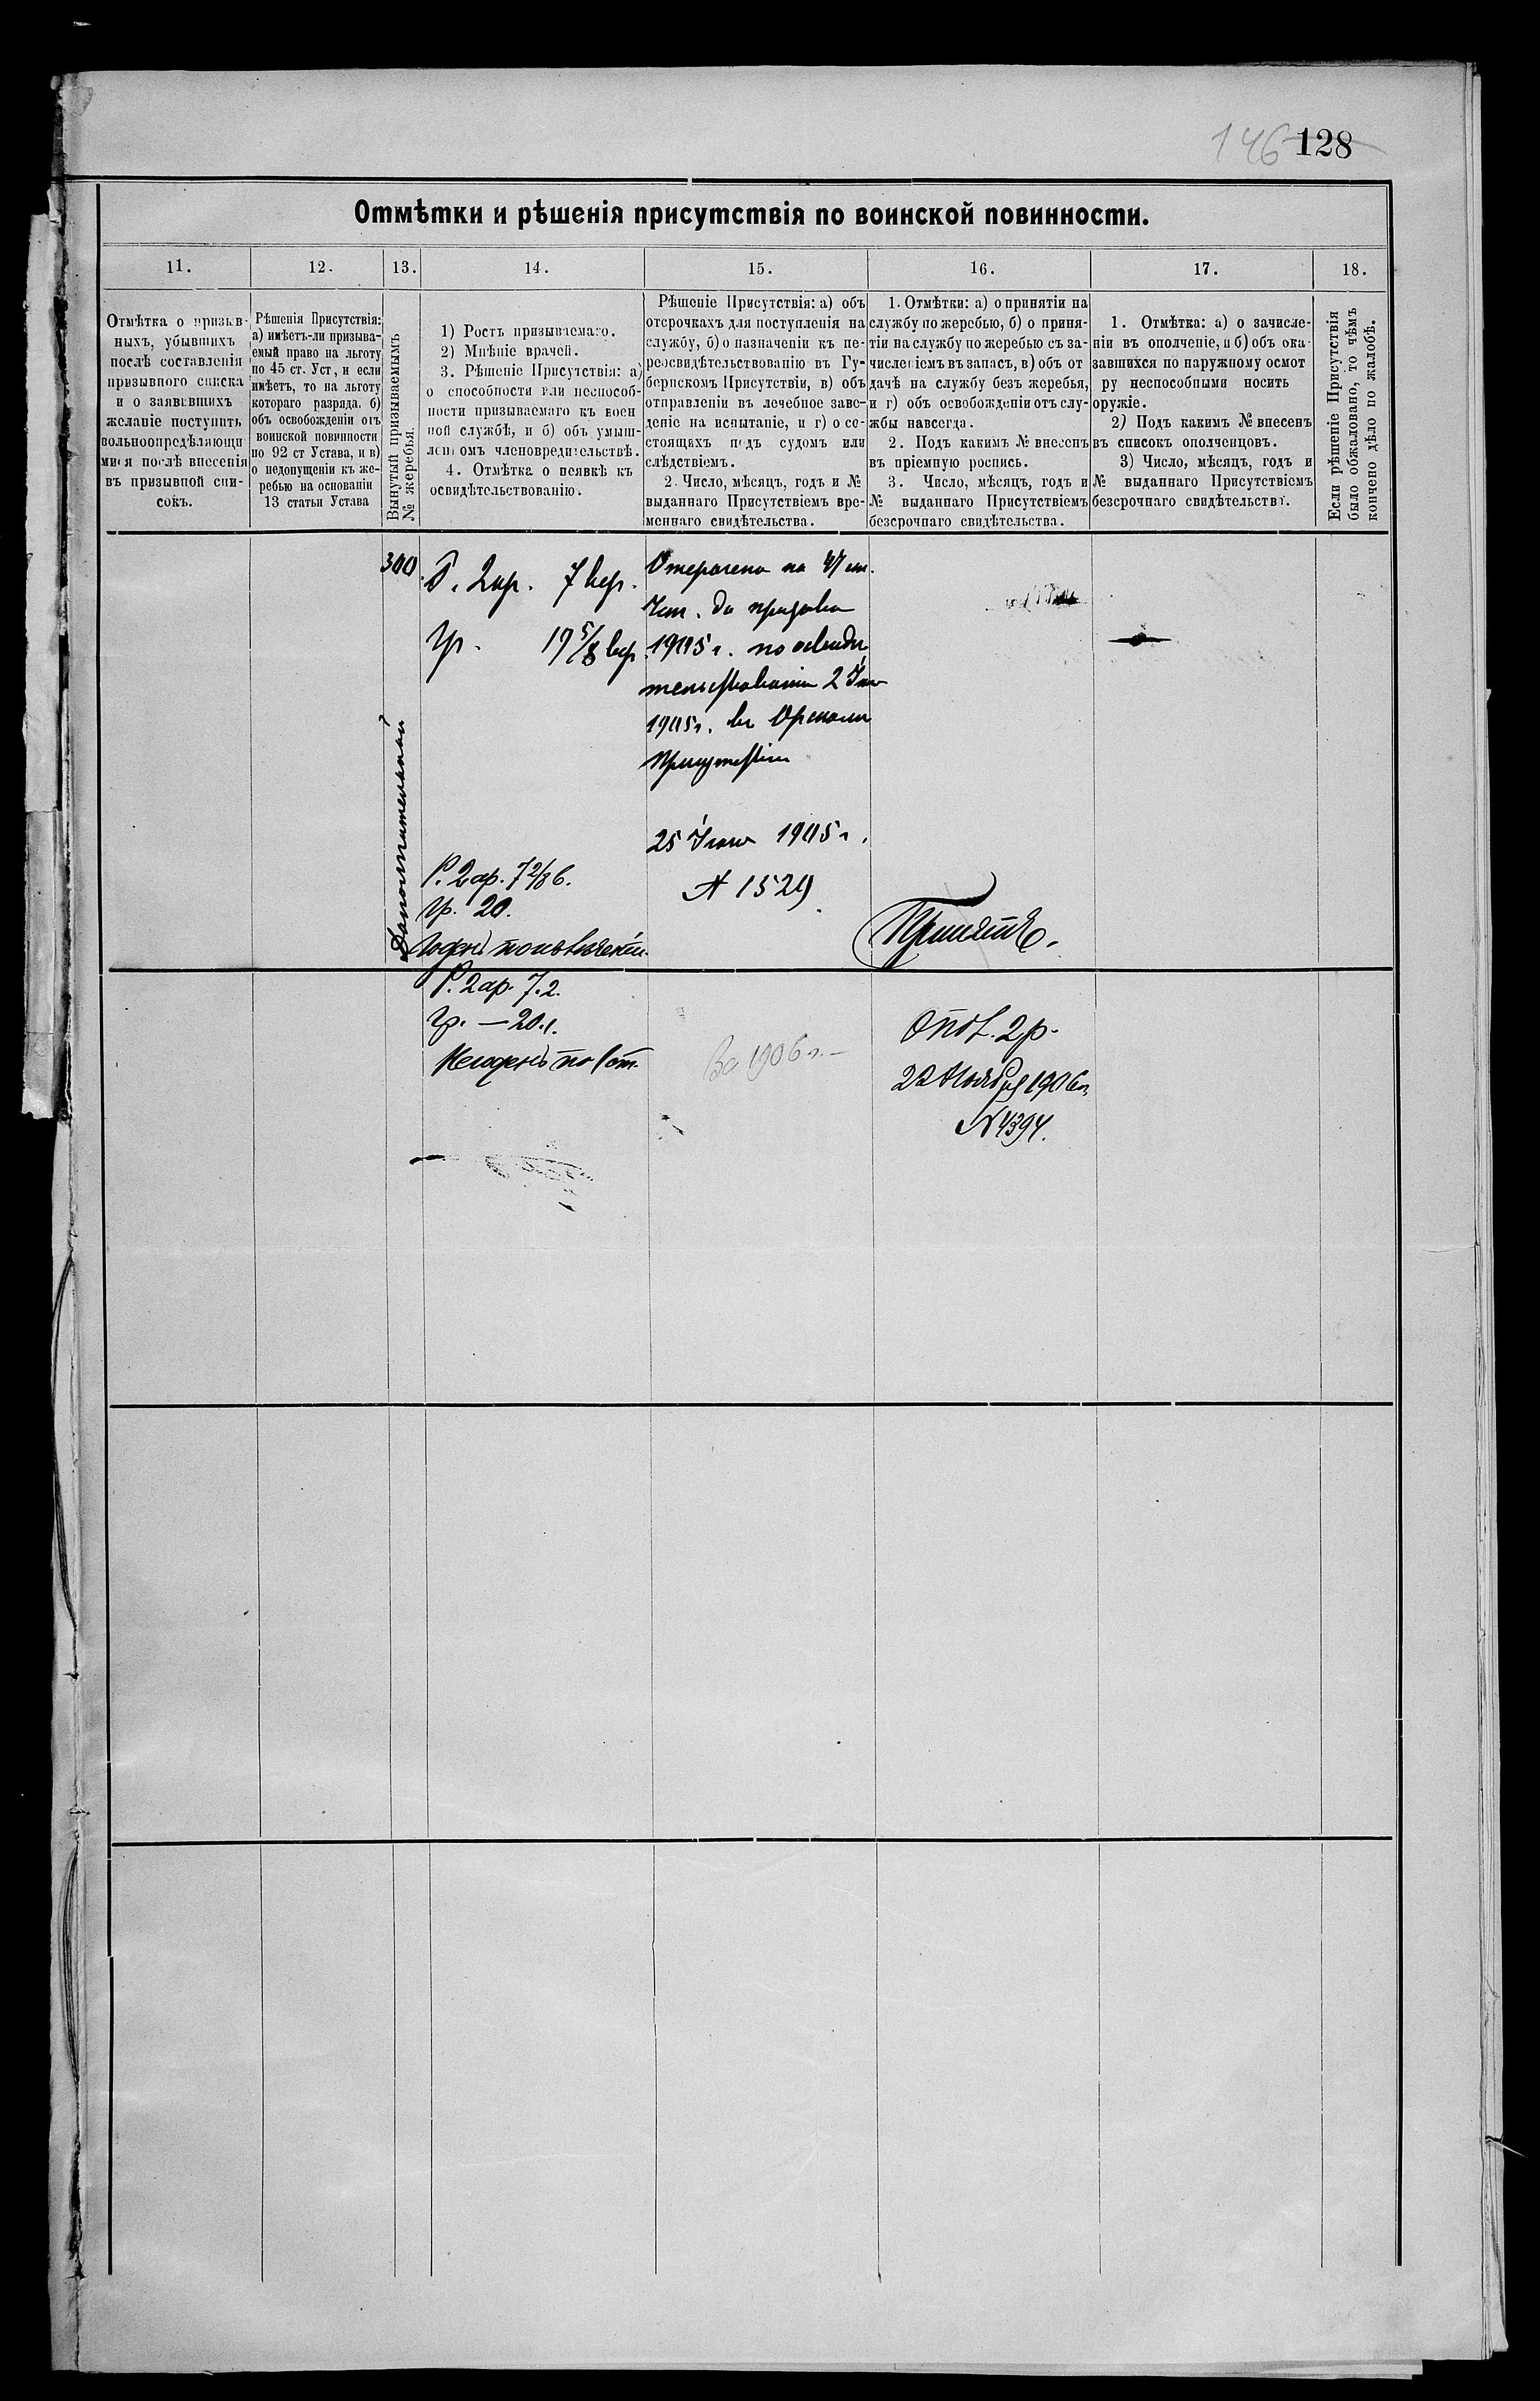 146 128
Отмѣтки и рѣшенія присутствія по воинской повинности.
11. 12. 13. 14. 15. 16. 17. 18.
Отмѣтка о призыв-
ныхъ, убывшихъ
послѣ составленія
призывного списка
и о заявившихъ
желаніе поступить
вольноопредѣляющи
мися послѣ внесенія
въ призывной спи-
сокъ.
Рѣшенія Присутствія:
а) имѣетъ-ли призыва-
емый право на льготу
по 45 ст. Уст, и если
имѣетъ, то на льготу
котораго разряда, б)
объ освобожденіи отъ
воинской повинности
по 92 ст Устава, и в)
о недопущеніи къ же-
ребью на основаніи
13 статьи Устава
Вынутый призываемымъ
№ жеребья.
1) Ростъ призываемаго.
2) Мнѣніе врачей.
3. Рѣшеніе Присутствія: а)
о способности или неспособ-
ности призываемаго къ воен
ной службѣ, и б) объ умыш-
ленномъ членовредительствѣ.
4. Отмѣтка о неявкѣ къ
освидѣтельствованію.
Рѣшеніе Присутствія: а) объ
отсрочкахъ для поступленія на
службу, б) о назначеніи къ пе-
реосвидѣтельствованію въ Гу-
бернскомъ Присутствіи, в) объ
отправленіи въ лечебное заве-
деніе на испытаніе, и г) о со-
стоящихъ подъ судомъ или
слѣдствіемъ.
2. Число, мѣсяцъ, годъ и №
выданнаго Присутствіемъ вре-
меннаго свидѣтельства.
1. Отмѣтки: а) о принятіи на
службу по жеребью, б) о приня-
тіи на службу по жеребью съ за-
численіемъ въ запасъ, в) объ от
дачѣ на службу безъ жеребья,
и г) объ освобожденіи отъ слу-
жбы навсегда.
2. Подъ какимъ № внесенъ
въ пріемную роспись.
3. Число, мѣсяцъ, годъ и
№ выданнаго Присутствіемъ
безсрочнаго свидѣтельства.
1. Отмѣтка: а) о зачисле-
ніи въ ополченіе, и б) объ ока
завшихся по наружному осмот
ру неспособными носить
оружіе.
2) Подъ какимъ № внесенъ
въ списокъ ополченцовъ.
3) Число, мѣсяцъ, годъ и
№ выданнаго Присутствіемъ
безсрочнаго свидѣтельства.
Если рѣшеніе Присутствія
было обжаловано, то чѣмъ
кончено дѣло по жалобѣ.
300
Дополнительный
2 ар. 7 вер.
Гр. 19 5/8 вер.
Р. 2 ар. 7 2/8 в.
Гр. 20.
Отсрочено по
до призыва
1905 г. по освидѣ
тельствованію 2
1905 г. въ Орскомъ
Присутствіи
25 1905 г.
№ 1529
Принятъ.
Р. 2 ар. 7.2.
Гр. — 20.1.
Негоденъ по
За 1906 г. —
Опол. 2 р.
22 Ноября 1906 г.
№ 4394.